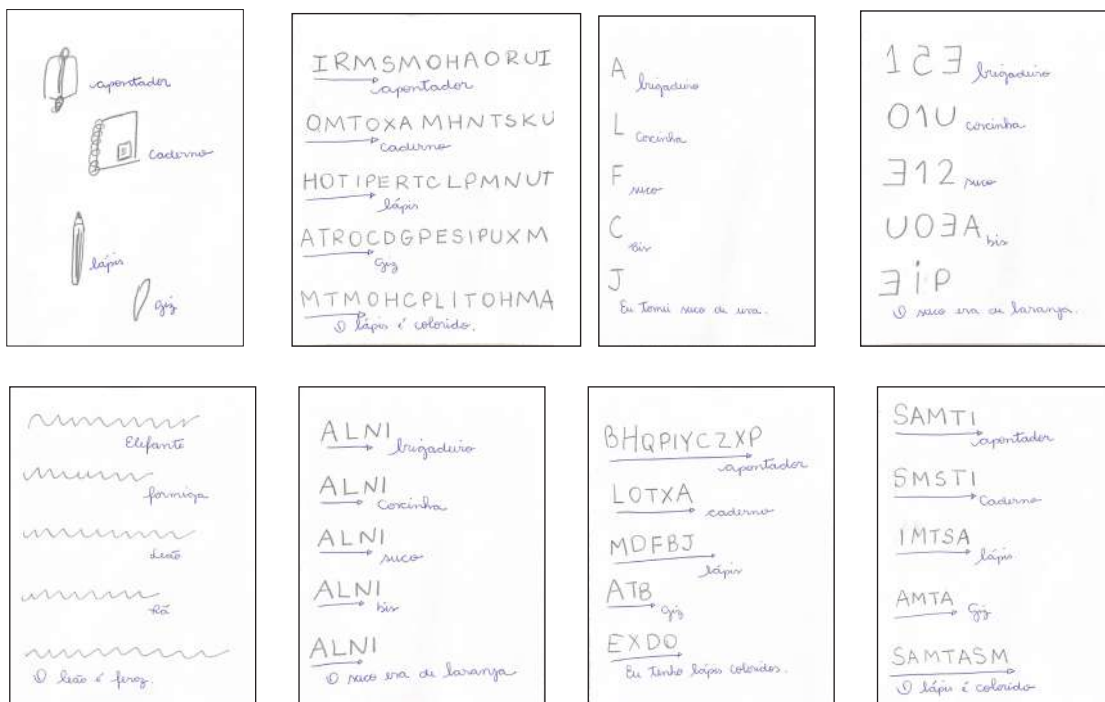 apontador
caderno
lápis
giz
IRMSMOHAORUI
apontador
OMTOXAMHNTSKU
caderno
HOTIPERTCLPMNUT
lápis
ATROCDGPESIPUXM
giz
MTMOHCPLITOHMA
O lápis é colorido.
A brigadeiro
L coxinha
F suco
C bis
J
Eu tomei suco de uva.
brigadeiro
O1U coxinha
Ǝ12 suco
UOƎA bis
ƎiP
O suco era de laranja.
Elefante
formiga
Leão
Rã
O leão é feroz.
ALNI brigadeiro
ALNI coxinha
ALNI suco
ALNI bis
ALNI
O suco era de laranja
BHQPIYCZXP
apontador
LOTXA
caderno
MDFBJ
lápis
ATB
giz
EXDO
Eu tenho lápis coloridos.
SAMTI
apontador
SMSTI
Caderno
IMTSA
lápis
AMTA Giz
SAMTASM
O lápis é colorido